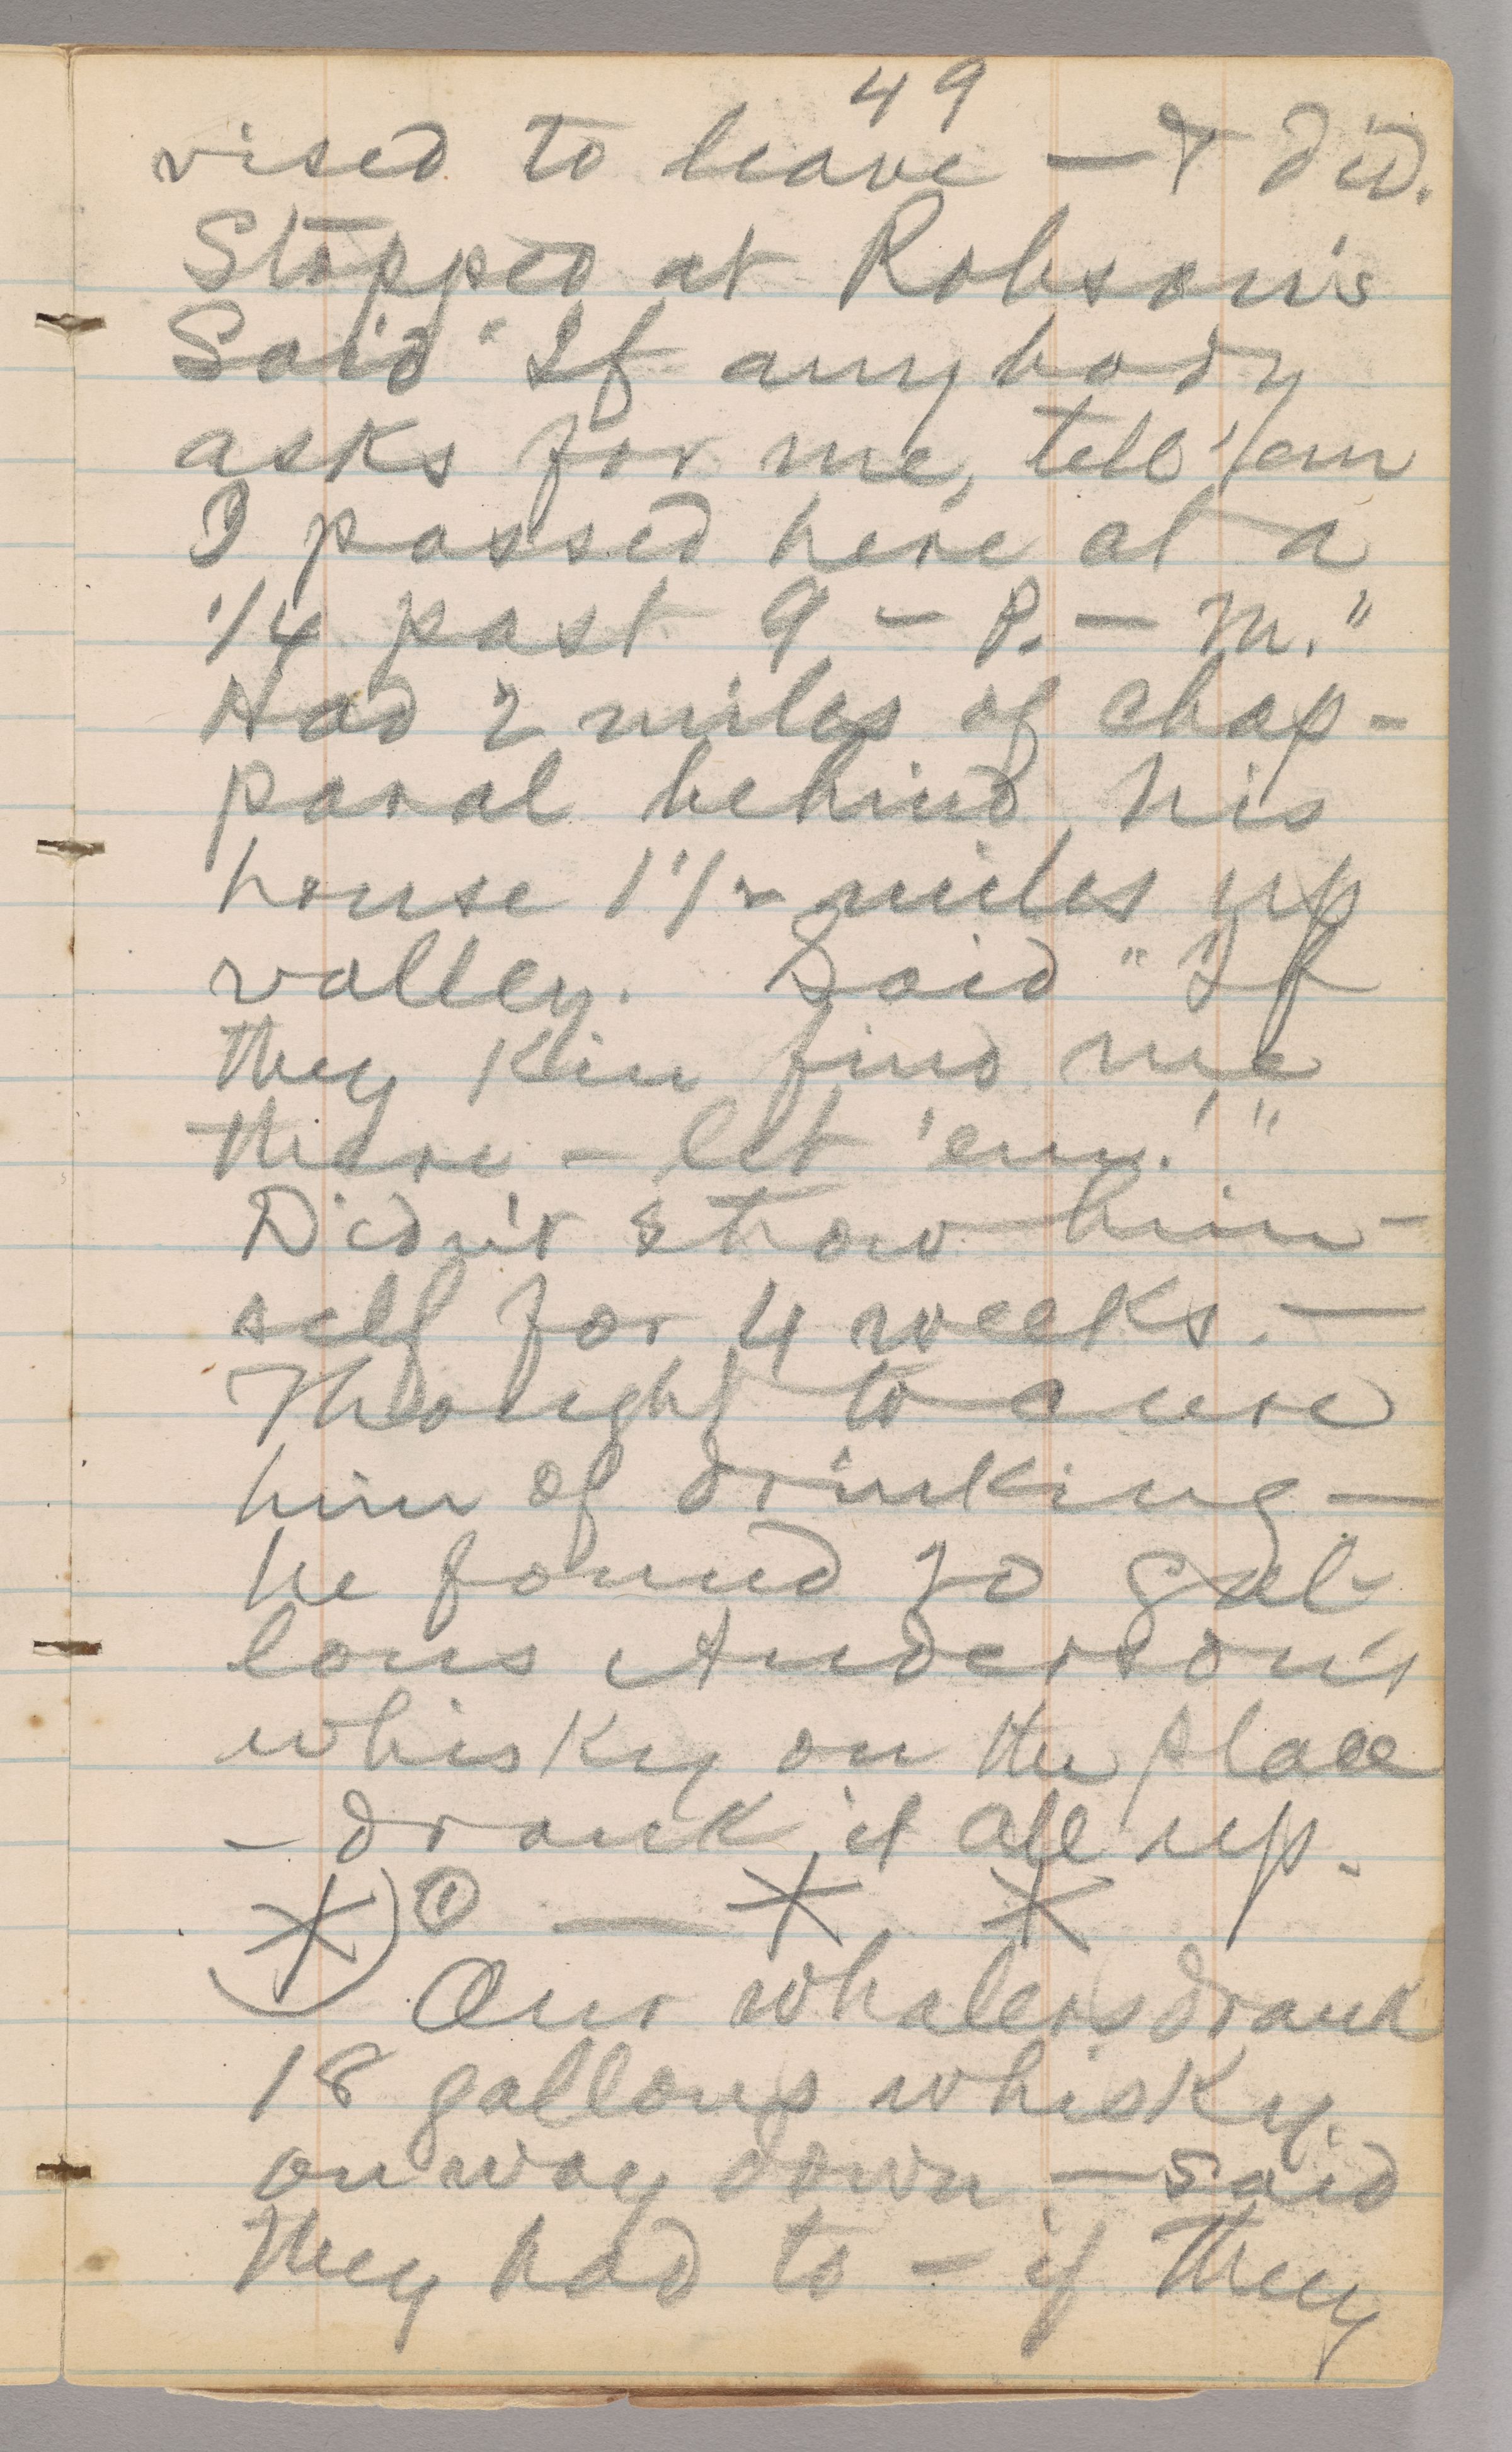 49
vised to leave — & did.
Stopped at Robson's
Said "If anybody
asks for me, tell 'em
I passed here at a
1/4 past 9 - P. - M."
Had 2 miles of chap-
paral behind his
house 1 1/2 miles up
valley. Said "If
they kin find me
there - let 'em!"
Didn't show him-
self for 4 weeks. —
Thought to cure
him of drinking —
he found 20 gal-
lons Anderson's
whisky on the place
- drank it all up.
*) ① — * *
Our whalers drank
18 gallons whisky
on way down — said
they had to - if they